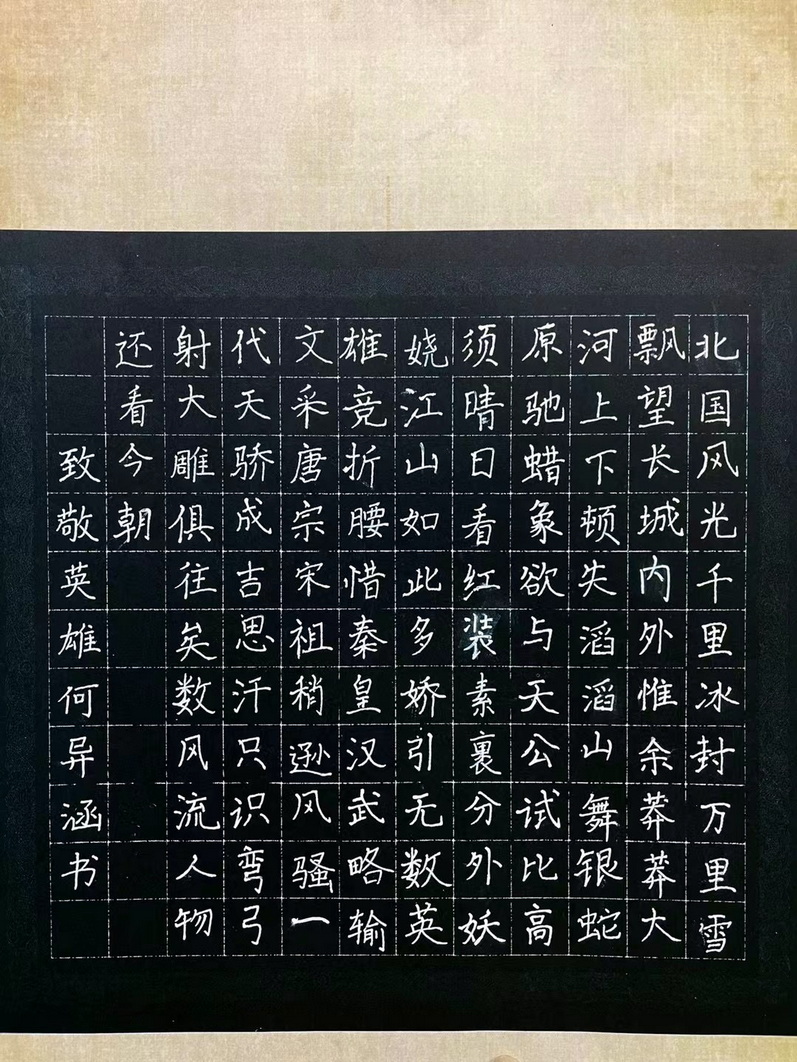 北国风光千里冰封万里雪
飘望长城内外惟余莽莽大
河上下顿失滔滔山舞银蛇
原驰蜡象欲与天公试比高
须晴日看红装素裹分外妖
娆江山如此多娇引无数英
雄竞折腰惜秦皇汉武略输
文采唐宗宋祖稍逊风骚一
代天骄成吉思汗只识弯弓
射大雕俱往矣数风流人物
还看今朝
致敬英雄何异涵书